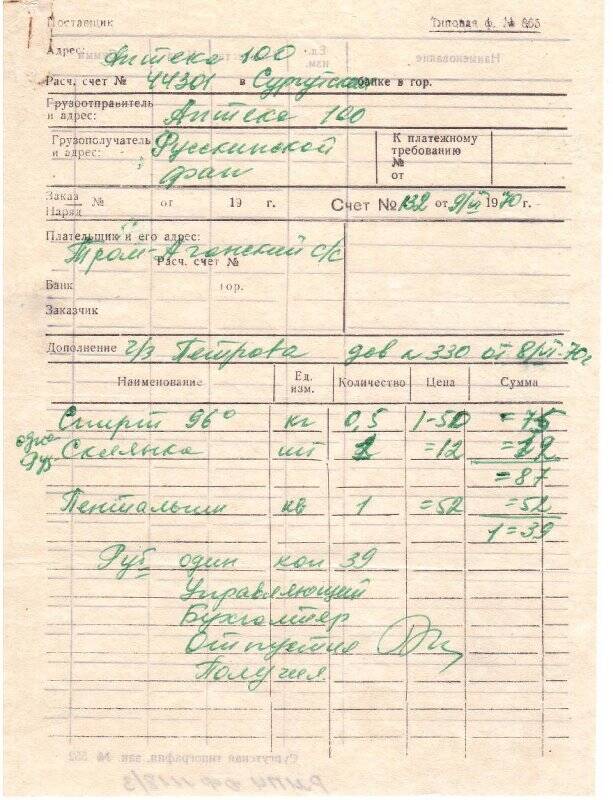 Поставщик Типовая ф. № 665
Адрес: Аптека 100
Расч. счет № 44301 в Сургутском банке в гор.
Грузоотправитель
и адрес: Аптека 100
Грузополучатель Русскинской
и адрес: фап
К платежному
требованию
№
от
Заказ
Наряд № от 19 г. Счет № 132 от 9/VI 1970 г.
Плательщик и его адрес:
Тром-Аганский с/с
Расч. счет №
Банк гор.
Заказчик
Дополнение ч/з Петрова дов № 330 от 8/VI-70г
Наименование Ед. изм. Количество Цена Сумма
Спирт 96° кг 0,5 1-50 =75
Склянка шт 1 =12 =12
=87
Пентальгин 1 =52 =52
1=39
Руб один коп 39
Управляющий
Бухгалтер
Отпустил
Получил
Сургутская типография, зак. № 552